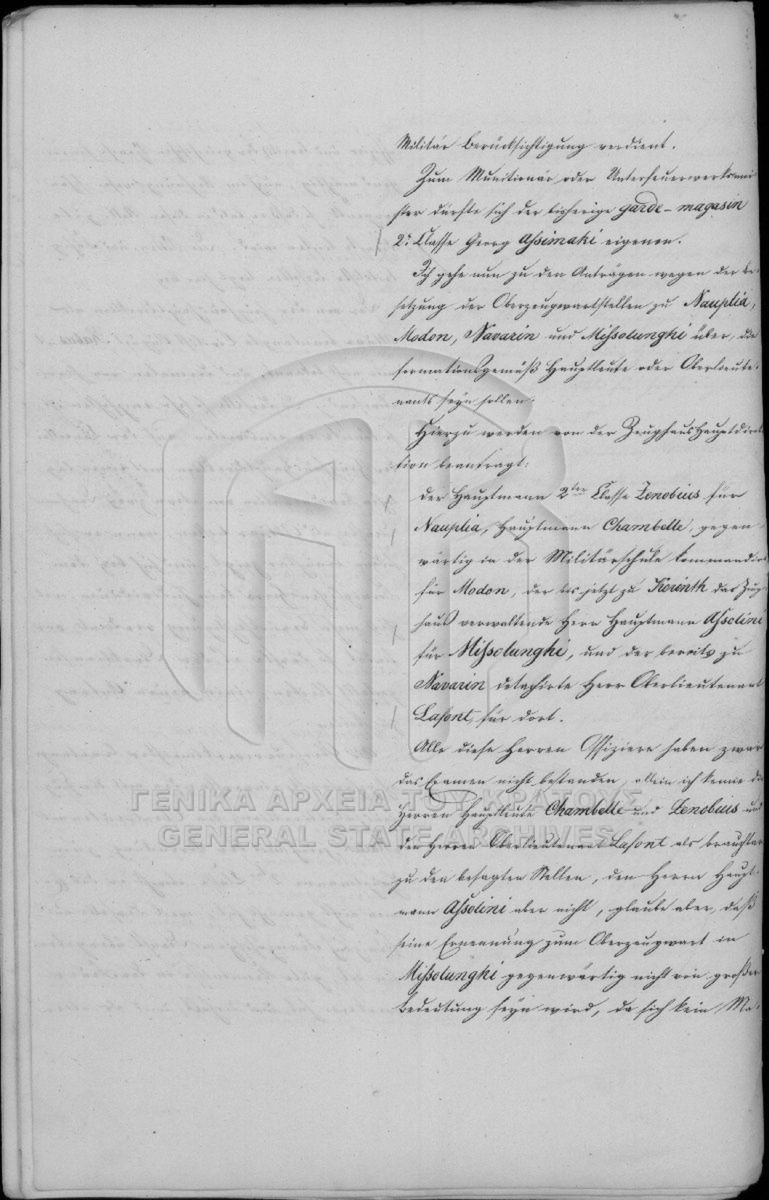 Militär Berücksichtigung verdient.
Zum Munitionär oder Unterfeuerwerksmei-
ster dürfte sich der bisherige garde-magasin
2r Classe Georg Assimaki eigenen.
Ich gehe nun zu den Anträgen wegen der Be-
setzung der Oberzeugwartstellen zu Nauplia,
Modon, Navarin und Missolunghi über, die
formationsgemäß Hauptleute oder Oberlieute-
nants seyn sollen.
Hierzu werden von der Zeughaus Hauptdirek-
tion beantragt:
Der Hauptmann 2ter Classe Zenobius für
Nauplia, Hauptmann Chambelle, gegen-
wärtig in der Militärschule kommandirt
für Modon, der bis jetzt zu Korinth das Zeug-
haus verwaltende Herr Hauptmann Assolini
für Missolunghi, und der bereits zu
Navarin detaschirte Herr Oberlieutenant
Lafont, für dort.
Alle diese Herren Offiziere haben zwar
das Examen nicht bestanden, allein ich kenne die
Herren Hauptleute Chambelle und Zenobius und
den Herrn Oberlieutenant Lafont als brauchbar
zu den besagten Stellen, den Herrn Haupt-
mann Assolini aber nicht, glaube aber, daß
seine Ernennung zum Oberzeugwart in
Missolunghi gegenwärtig nicht von großer
Bedeutung seyn wird, da sich kein Ma-
ΓΕΝΙΚΑ ΑΡΧΕΙΑ ΤΟΥ ΚΡΑΤΟΥΣ
GENERAL STATE ARCHIVES